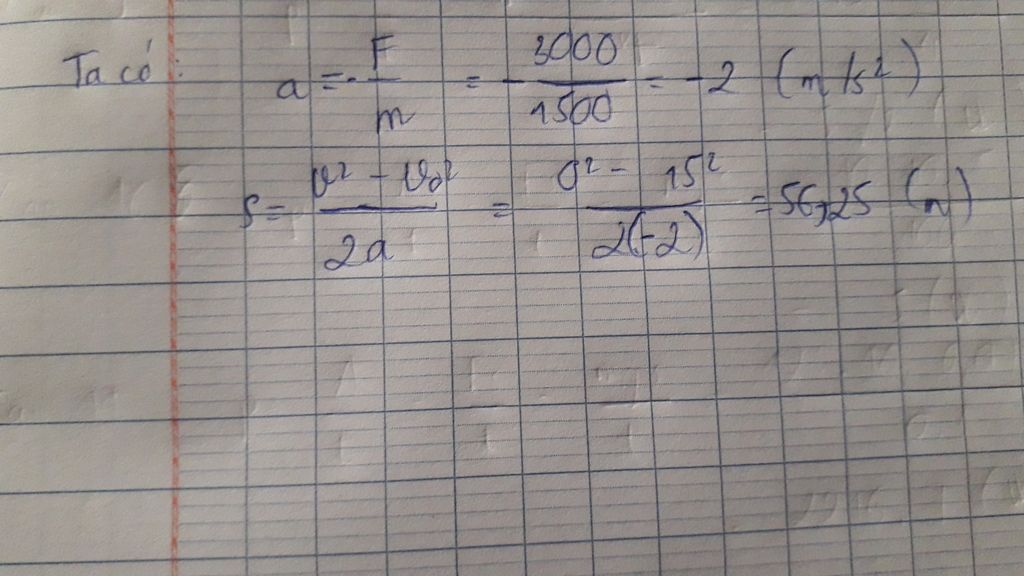 Ta có: a = - F/m = - 3000/1500 = - 2 (m/s²)
S = v² - v₀²/2a = 0² - 15²/2(-2) = 56,25 (m)